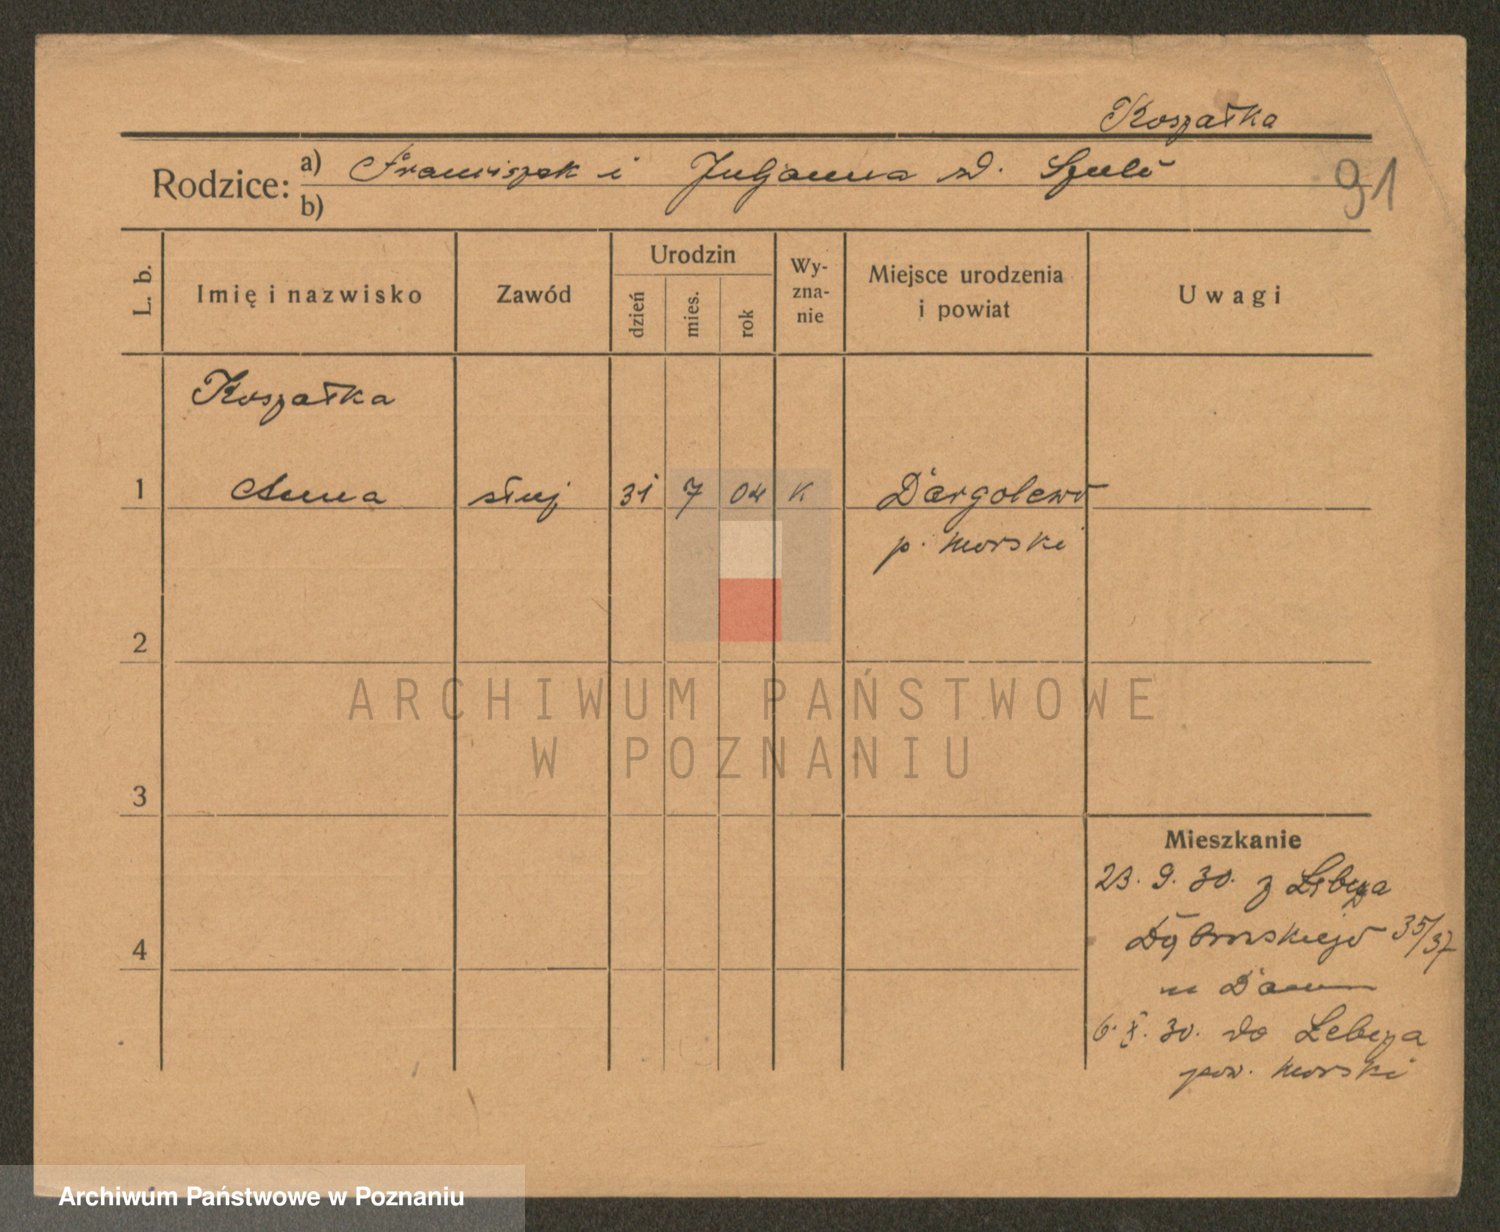 Koszałka
Rodzice: a) Franciszek i Juljanna zd. Szulc
b)
91
L. b.
Imię i nazwisko
Zawód
Urodzin
dzień
mies.
rok
Wy-
zna-
nie
Miejsce urodzenia
i powiat
Uwagi
Koszałka
1 Anna służ 31 7 04 K Dargolewo
p. morski
2
3
4
Mieszkanie
23. 9. 30. z
Dąbrowskiego 35/37
6. X. 30. do
pow. morski
ARCHIWUM PAŃSTWOWE
W POZNANIU
Archiwum Państwowe w Poznaniu